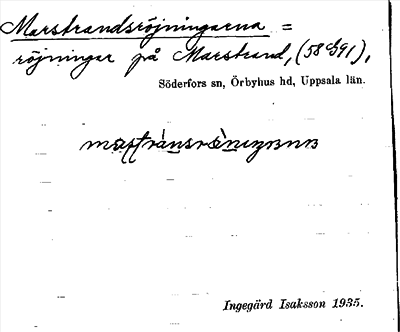 Marstrandsröjningarna =
röjningar på Marstrand,
Söderfors sn, Örbyhus hd, Uppsala län.
Ingegärd Isaksson 1935.